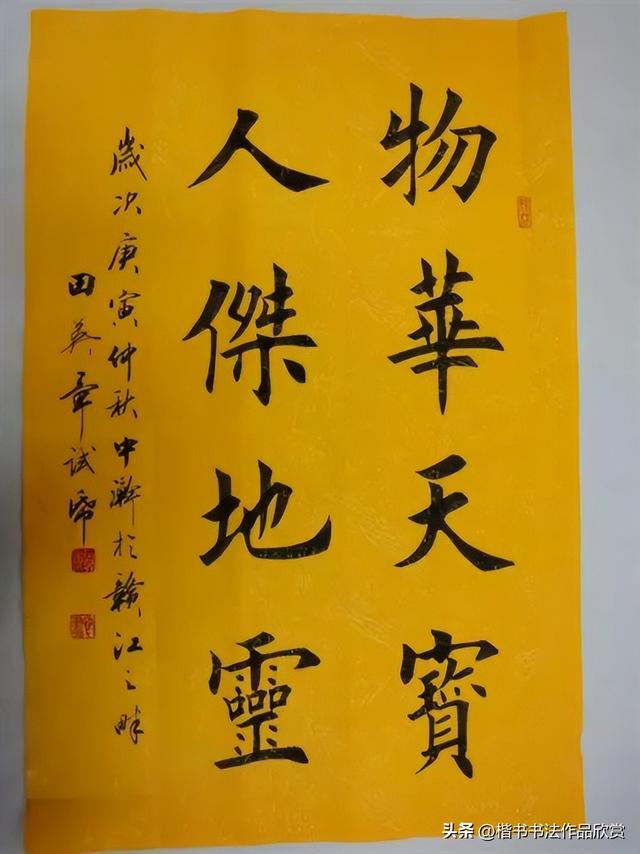 物華天寶
人傑地靈
歲次庚寅仲秋中澣於贛江之畔
田英章試筆
头条 @楷书书法作品欣赏